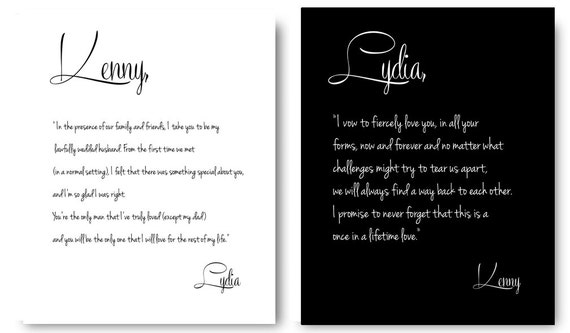 Kenny,
"In the presence of our family and friends, I take you to be my
lawfully wedded husband. From the first time we met
(in a normal setting), I felt that there was something special about you,
and I'm so glad I was right.
You're the only man that I've truly loved (except my dad)
and you will be the only one that I will love for the rest of my life."
Lydia
Lydia,
"I vow to fiercely love you, in all your
forms, now and forever and no matter what
challenges might try to tear us apart,
we will always find a way back to each other.
I promise to never forget that this is a
once in a lifetime love."
Kenny